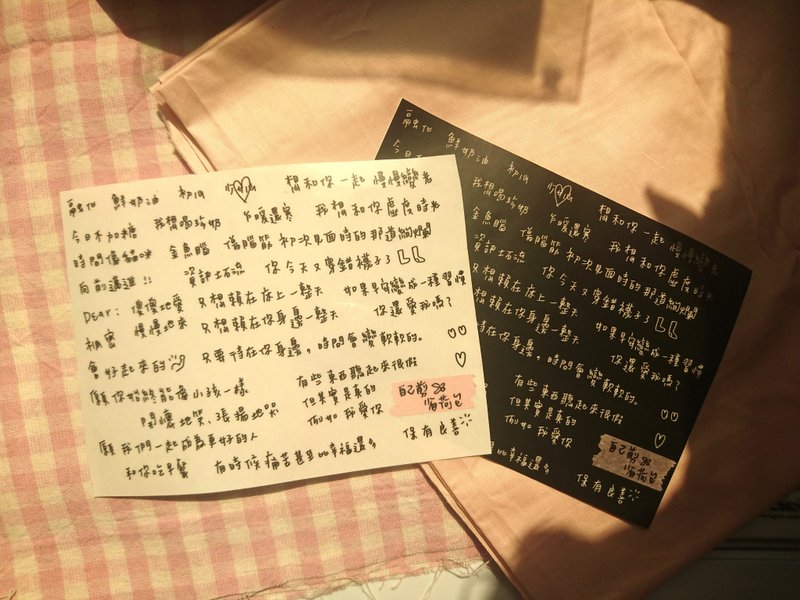 融化 鮮奶油 初心 想和你一起 慢慢變老
今日不加糖 我想喝珍奶 乍暖還寒 我想和你虛度時光
時間像貓咪 金魚腦 傷腦筋 初次見面時的那道絢爛
向前邁進!! 資部土石流 你今天又穿錯襪子了
Dear: 傻傻地愛 只想賴在床上一整天 如果早安變成一種習慣
慢慢地來 只想賴在你身邊一整天 你還愛我嗎?
會好起來的 只要待在你身邊,時間會變軟軟的。
願你始終能像小孩一樣 有些東西聽起來很假
開懷地笑、張揚地哭 但其實是真的
例如 我愛你
願我們一起成為更好的人
自己剪 88
省荷包
和你吃早餐 有時候痛苦甚至比幸福還多 保有良善
融化 鮮奶油 初心 想和你一起 慢慢變老
今日不
我想喝珍奶 乍暖還寒 我想和你虛度時光
金魚腦 傷腦筋 初次見面時的那道絢爛
資部土石流 你今天又穿錯襪子了
只想賴在床上一整天 如果早安變成一種習慣
只想賴在你身邊一整天 你還愛我嗎?
待在你身邊,時間會變軟軟的。
有些東西聽起來很假
但其實是真的
例如 我愛你
自己剪 88
省荷包
比幸福還多 保有良善